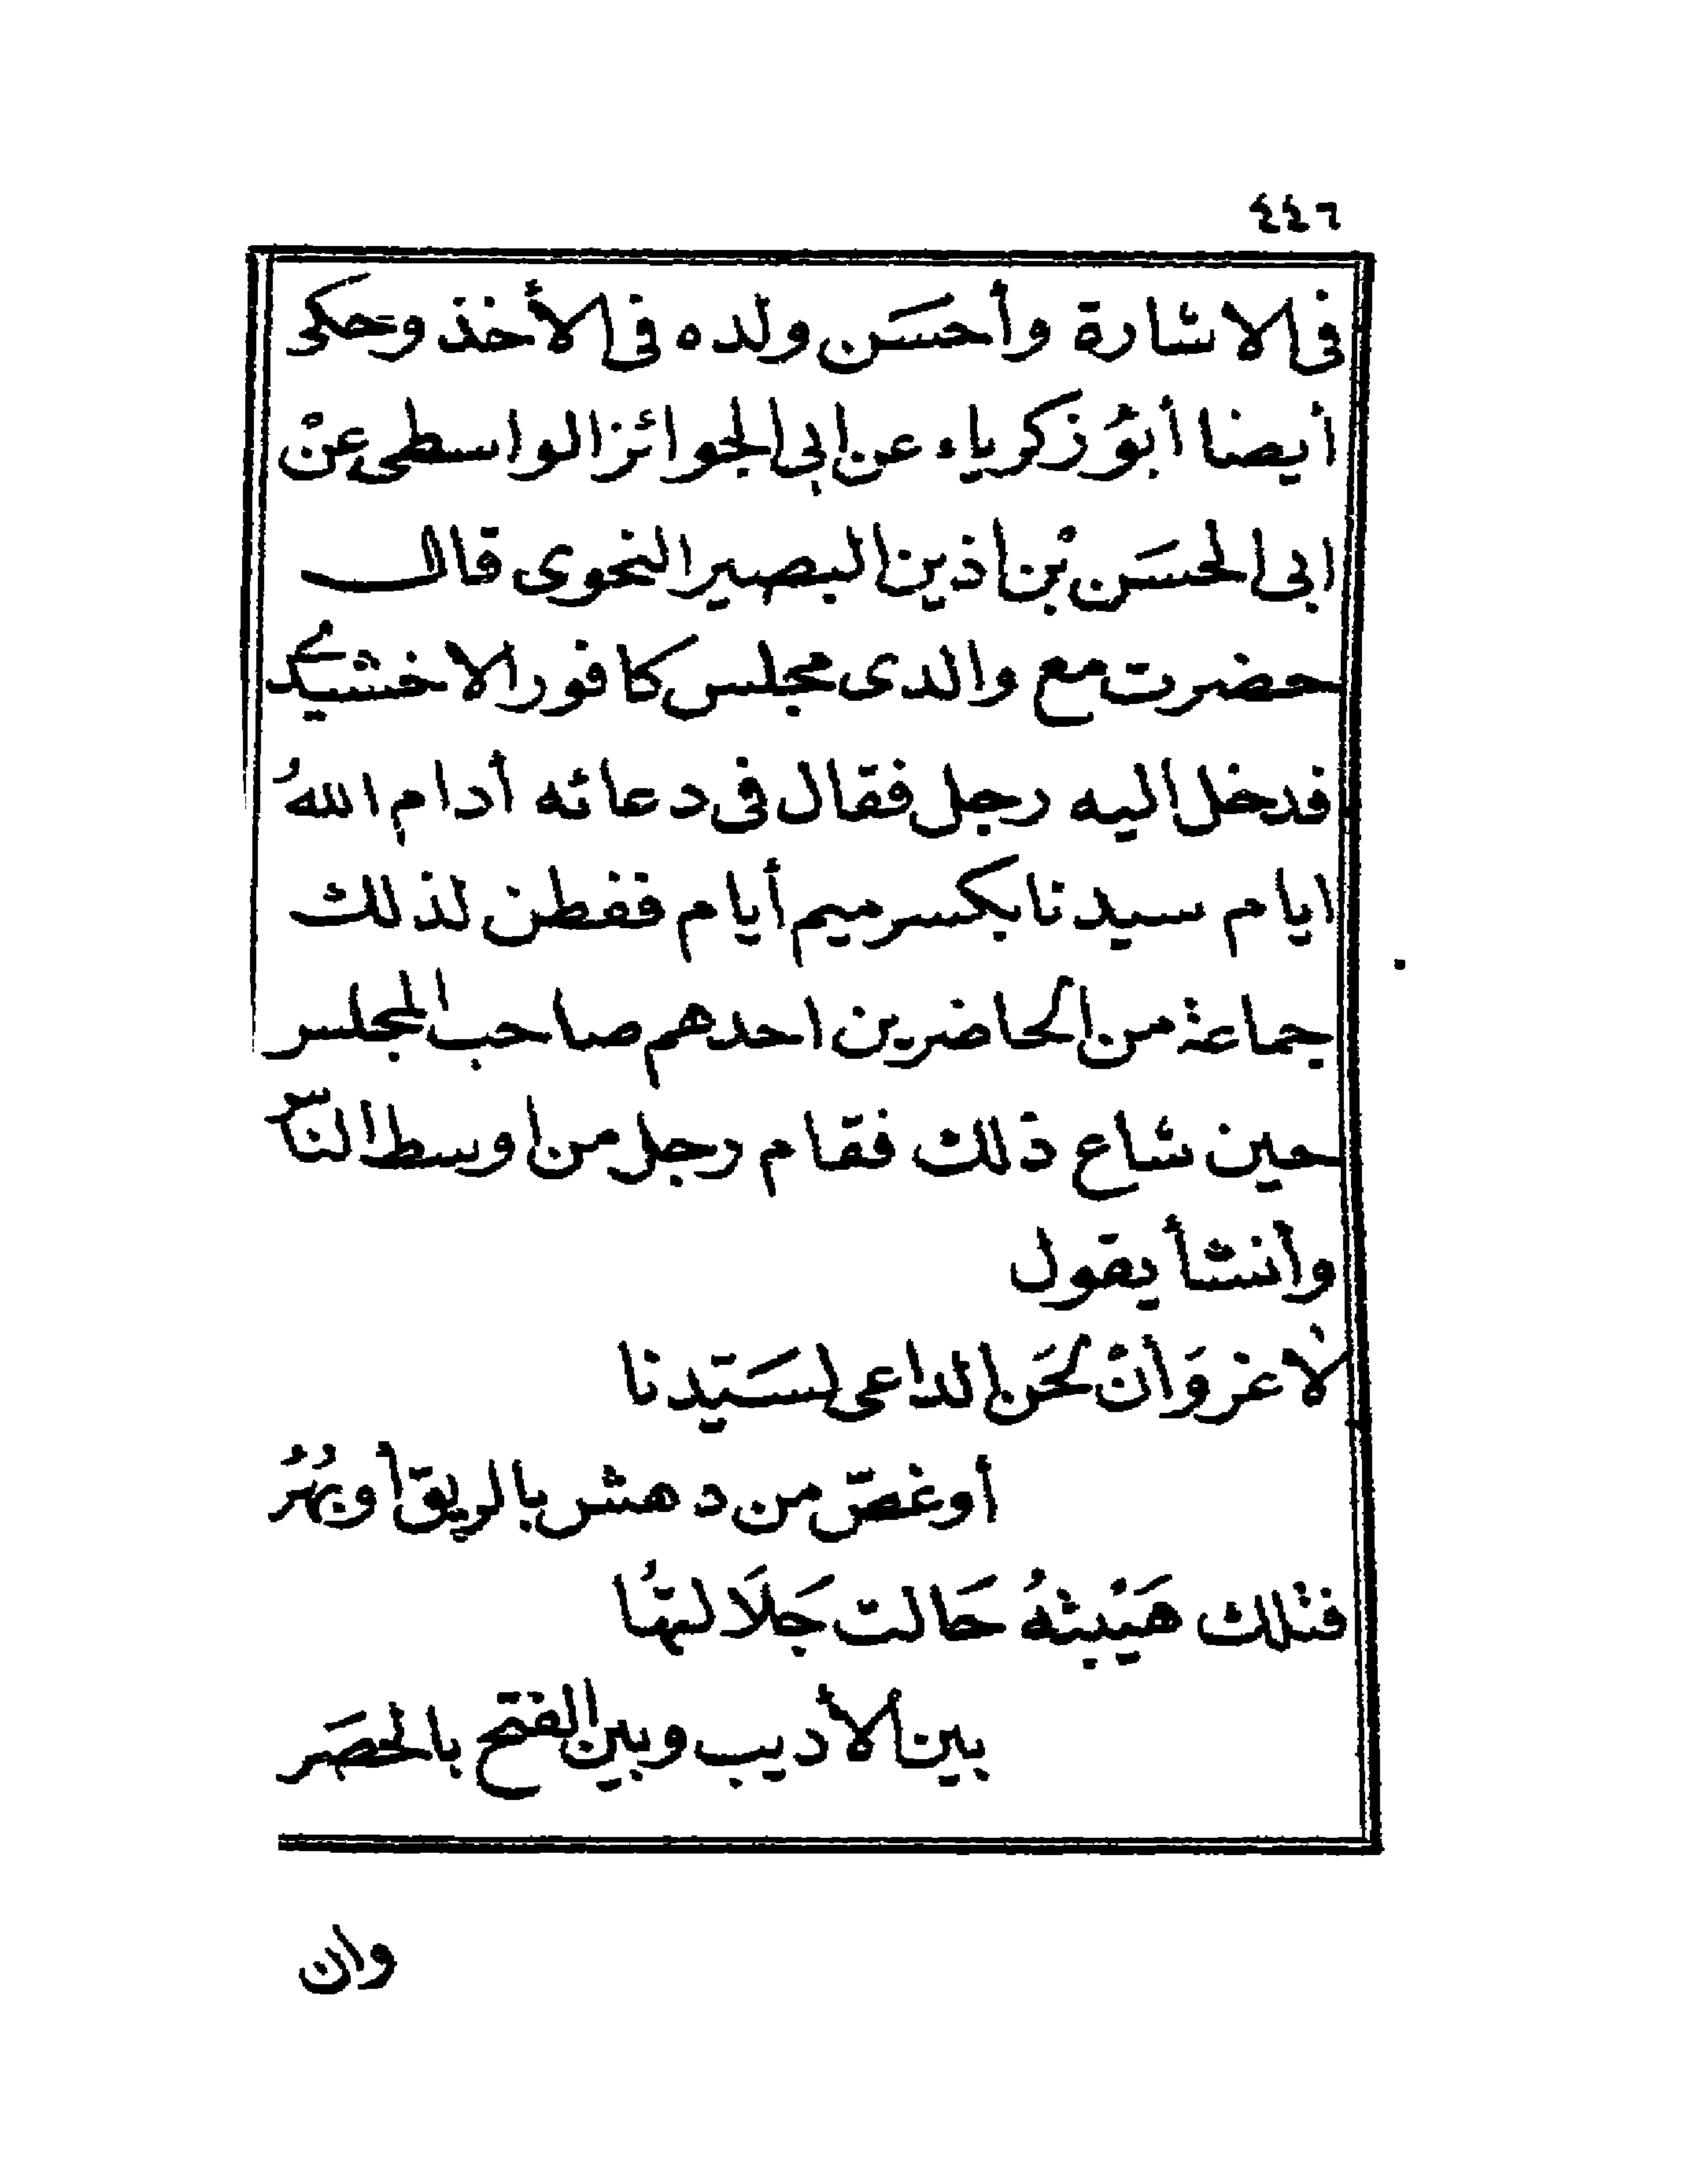 ٤٤٦
فى الاشارة وأحسَن ولده فى الأخذ وحكى
أيضا أبوُ زكرياء عن ابى الجوائز الواسطى عنْ
ابى الحسَن بْن اذين البصير النحوى قال
حضرت مع والدى مجلس كافور الاخشيد
فدخل اليه رجل فقال فى دعائه أدام اللهُ
ايام سيدنا بكسر ميم أيام ففطن لذلك
جماعة من الحاضرين احدهم صاحب المجلس
حين شاع ذلك فقام رجل من اوسط الناس
وأنشأ يقول
لا غروَ أنْ لحَن الداعى لسَيّدنا
أو غصّ من دهش بالريق أو بُهُر
فتلك هَيْبتُهُ حَالت جَلَالتهُا
بين الأديب وبين الفتح بالحصَر
وان